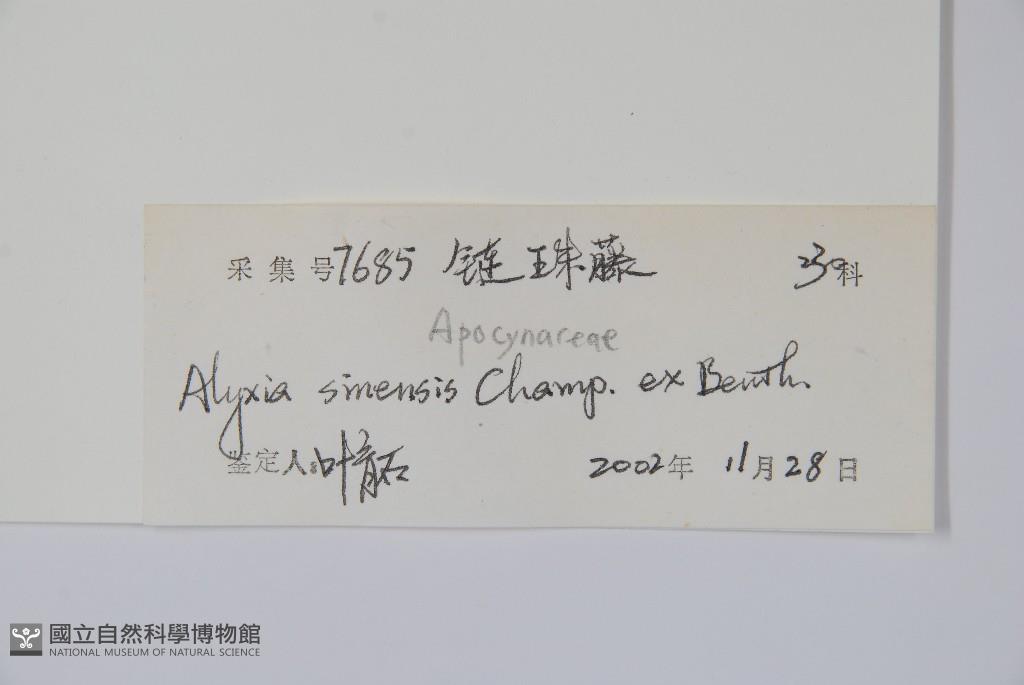 采集号7685 链珠藤 230科
Apocynareae
Alyxia sinensis Champ. ex Benth.
鉴定人:叶育石
2002年 11月28日
國立自然科學博物館
NATIONAL MUSEUM OF NATURAL SCIENCE